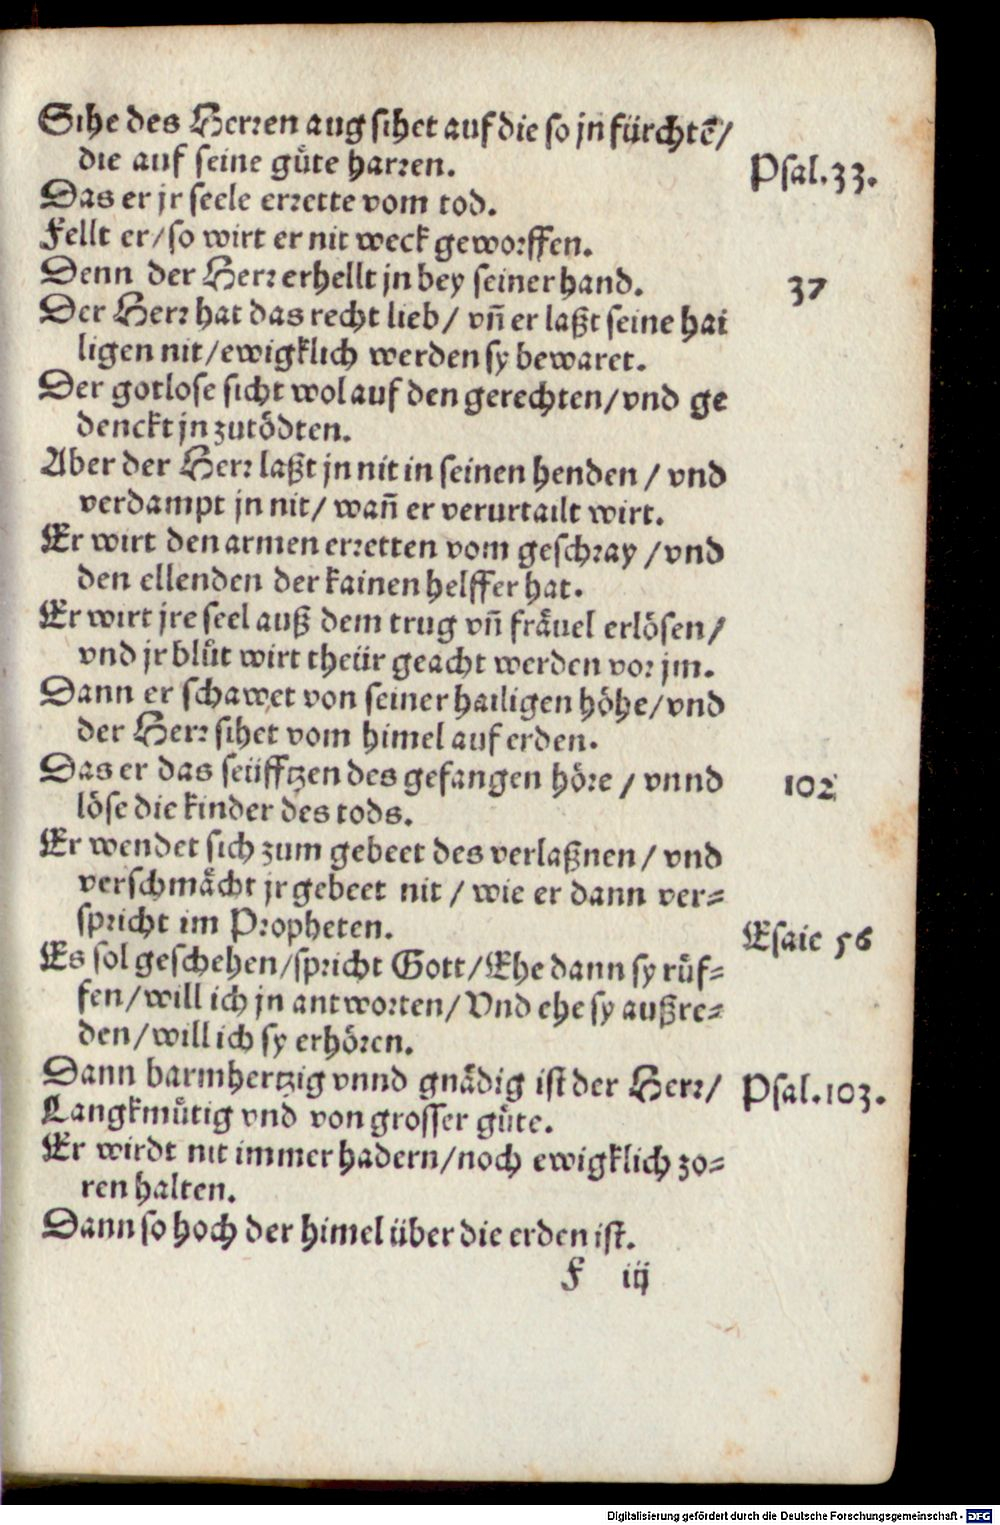 Sihe des Herren aug sihet auf die so jn fürchtē/
die auf seine gůte harren.
Psal.33.
Das er jr seele errette vom tod.
Fellt er/so wirt er nit weck geworffen.
Denn der Herr erhellt jn bey seiner hand.
37
Der Herr hat das recht lieb/ vñ er laßt seine hai
ligen nit/ewigklich werden sy bewaret.
Der gotlose sicht wol auf den gerechten/vnd ge
denckt jn zutödten.
Aber der Herr laßt jn nit in seinen henden / vnd
verdampt jn nit/ wañ er verurtailt wirt.
Er wirt den armen erretten vom geschray /vnd
den ellenden der kainen helffer hat.
Er wirt jre seel auß dem trug vñ fräuel erlösen/
vnd jr blůt wirt theür geacht werden vor jm.
Dann er schawet von seiner hailigen höhe/vnd
der Herr sihet vom himel auf erden.
Das er das seüfftzen des gefangen höre / vnnd
102
löse die kinder des tods.
Er wendet sich zum gebeet des verlaßnen/ vnd
verschmächt jr gebeet nit / wie er dann ver⸗
spricht im Propheten.
Esaie 56
Es sol geschehen/spricht Gott/Ehe dann sy růf⸗
fen/will ich jn antworten/Vnd ehe sy außre⸗
den/will ich sy erhören.
Dann barmhertzig vnnd gnädig ist der Herr/
Psal.103.
Langkmůtig vnd von grosser gůte.
Er wirdt nit immer hadern/noch ewigklich zo⸗
ren halten.
Dann so hoch der himel über die erden ist.
F iij
Digitalisierung gefördert durch die Deutsche Forschungsgemeinschaft - DFG